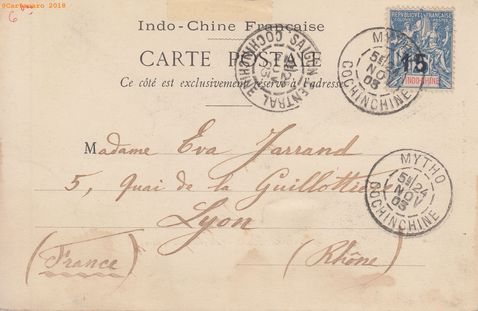 ©Cartemaro 2018
6
Indo-Chine Française
CARTE POSTALE
Ce côté est exclusivement réservé à l'adresse
SAIGON CENTRAL
COCHINCHINE
REPUBLIQUE FRANÇAISE
15
INDO-CHINE
MYTHO
NOV
03
COCHINCHINE
Madame Eva Jarrand
5, Quai de la Guillotière
Lyon
(Rhône)
(France)
MYTHO
24
NOV
03
COCHINCHINE